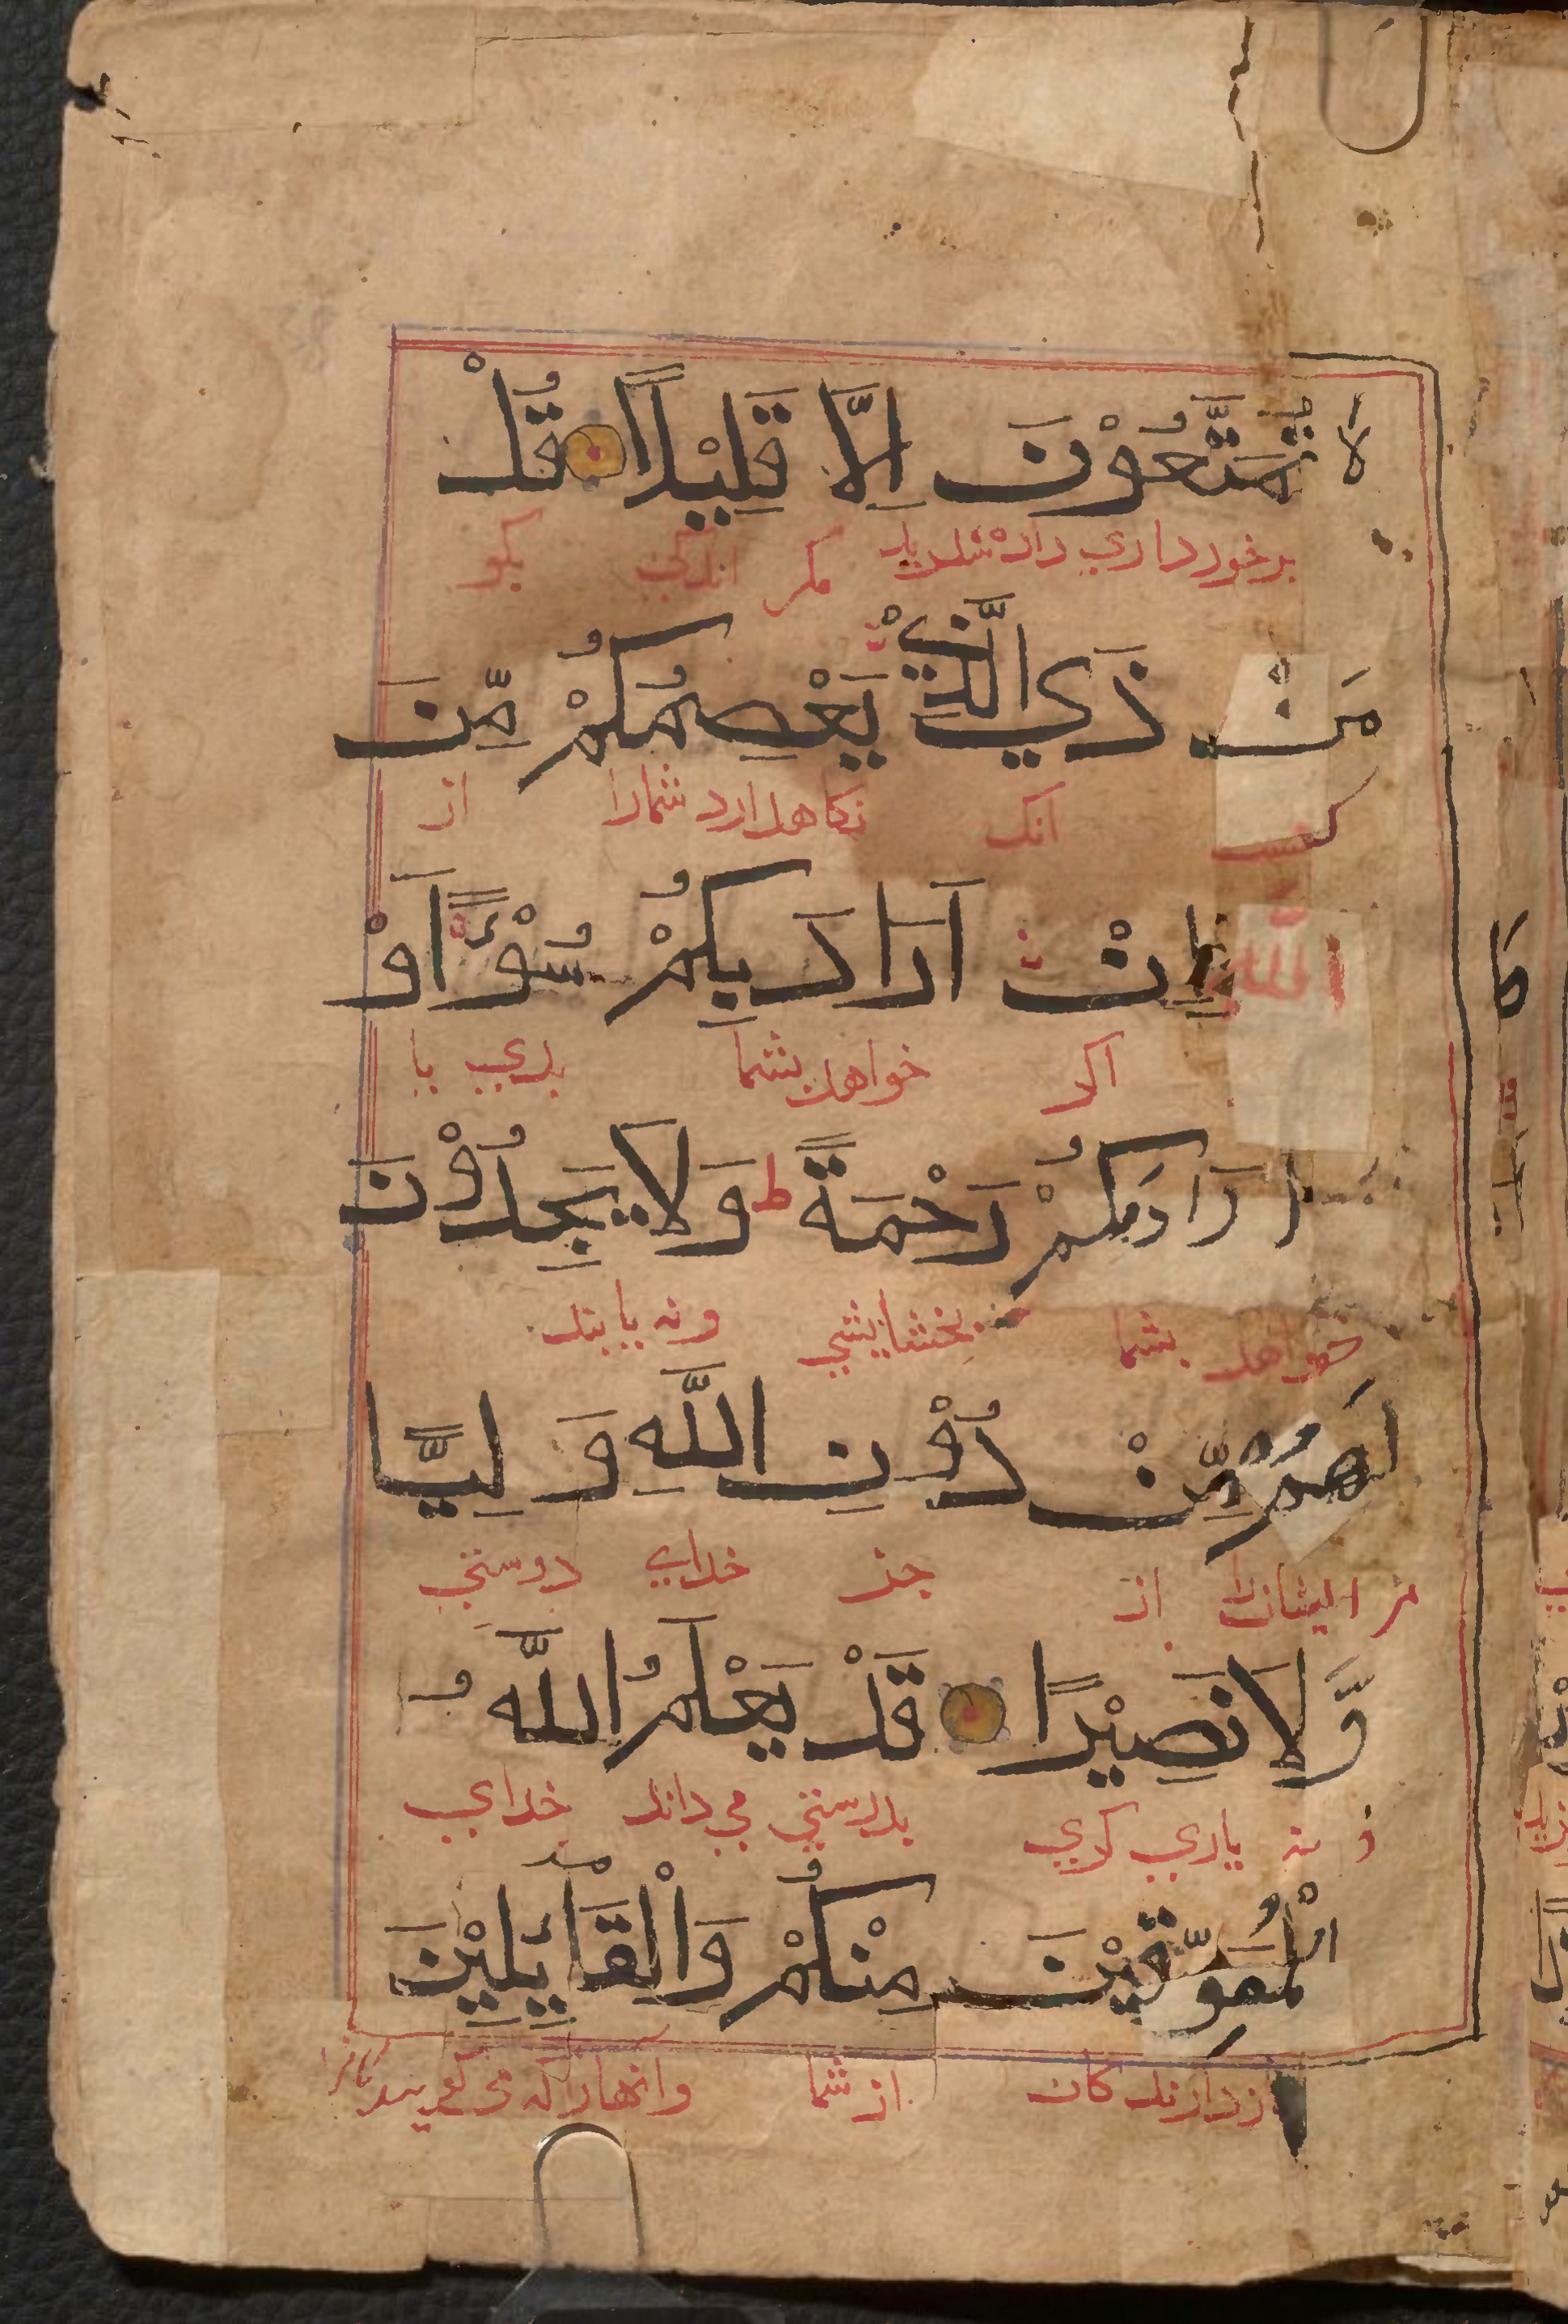 لا تُمَتَّعُوْنَ اِلَّا قَلِيْلًا قُلْ
برخورداري داده شديد مكر اندكي بكو
مَنْ ذَي الَّذِيْ يَعْصِمُكُمْ مِّنَ
كيست انك نكاهدارد شمارا از
اللّه اِنْ اَرَادَ بِكُمْ سُوْءًا اَوْ
اكر خواهد بشما بدي يا
اَرَادَ بِكُمْ رَحْمَةً ط وَلَا يَجِدُوْنَ
خواهد بشما بخشايشي ونه يابند
لَهُمْ مِّنْ دُوْنِ اللَّهِ وَلِيًّا
مر ايشانرا از جز خداي دوستي
وَّلَا نَصِيْرًا قَدْ يَعْلَمُ اللَّهُ
و نه ياري كري بدرستي مي داند خداي
الْمُعَوِّقِيْنَ مِنْكُمْ وَالْقَائِلِيْنَ
بازدارندكان از شما وانهارا كه مي كويند